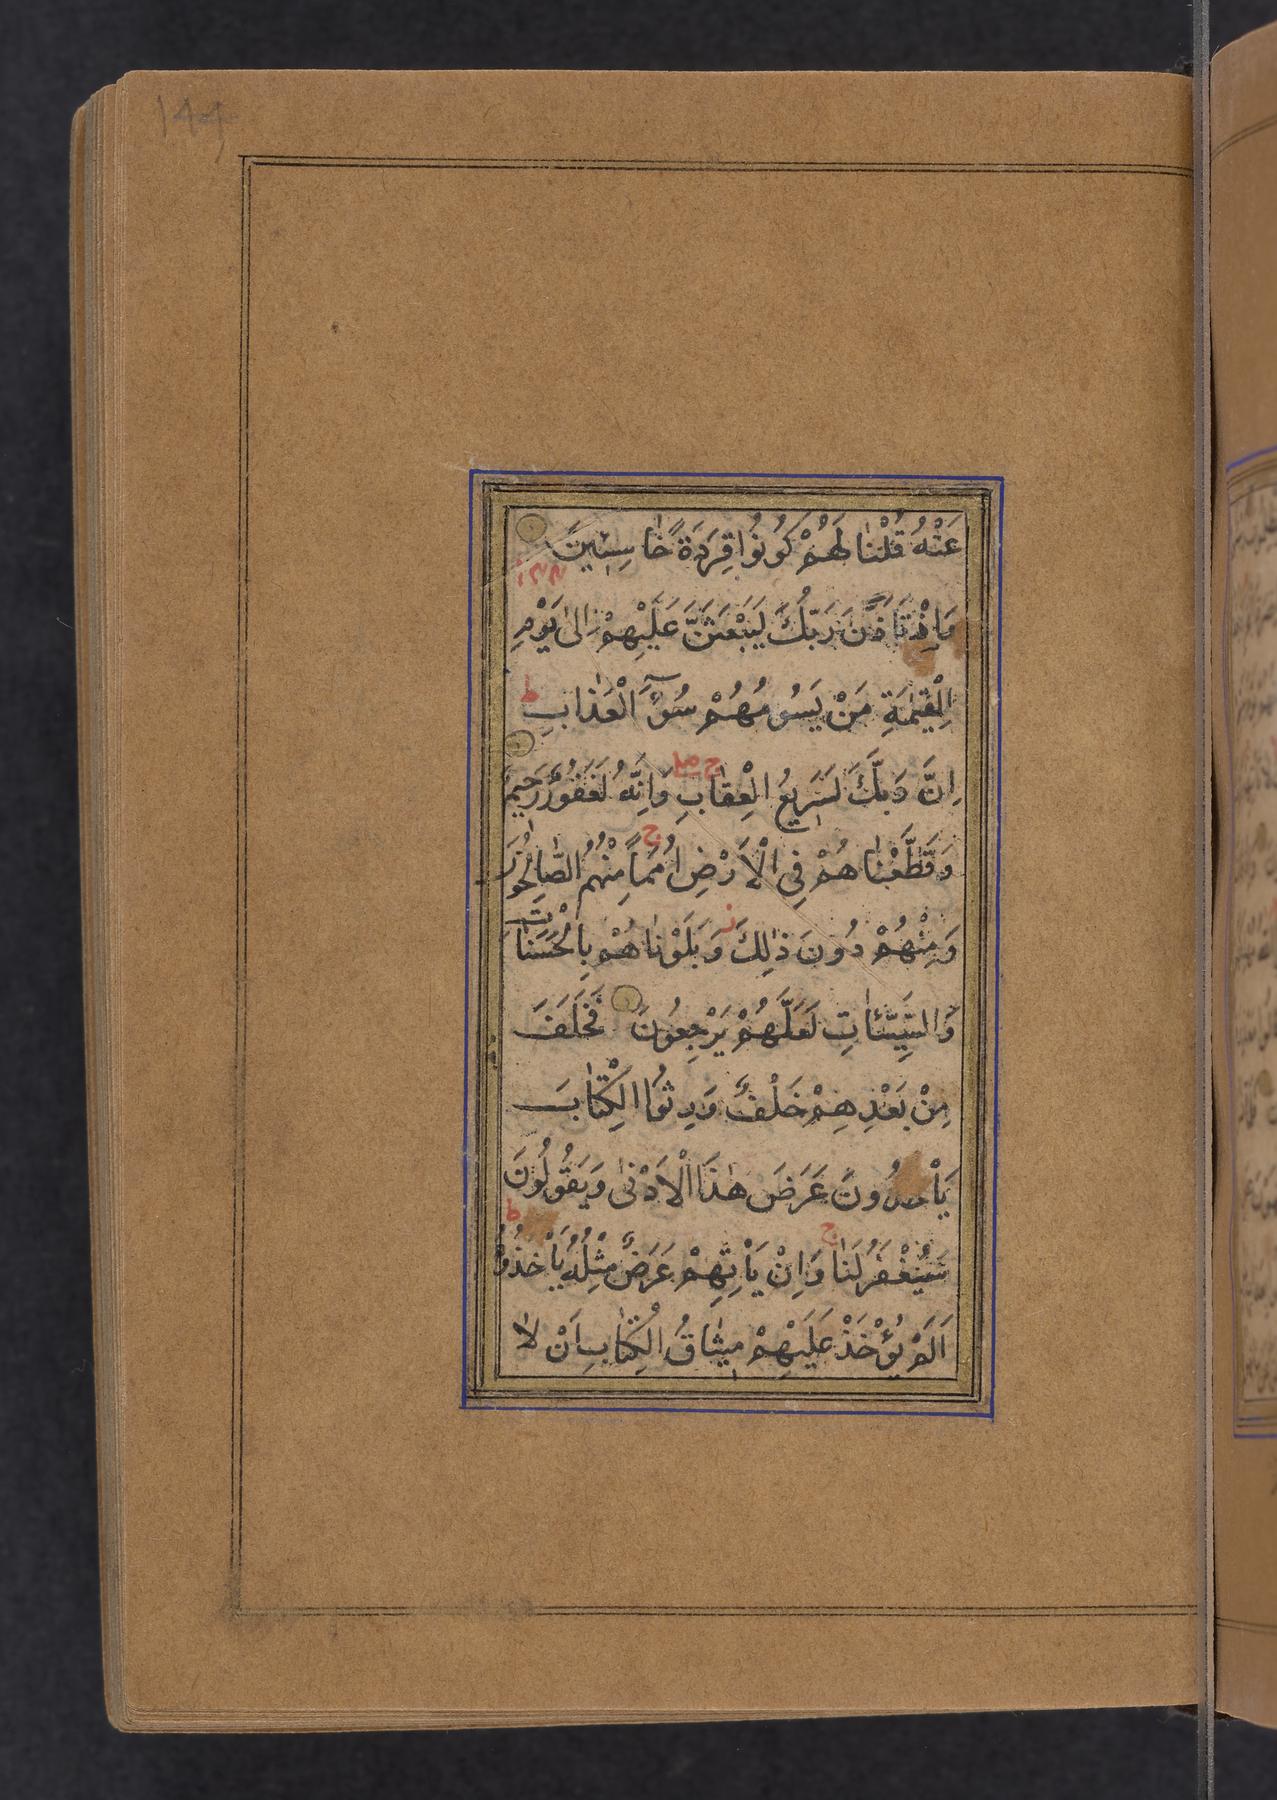 ١٤٤
عَنْهُ قُلْنٰا لَهُمْ كُونُوا قِرَدَةً خٰاسِئِينَ
وَاِذْ تَاَذَّنَ رَبُّكَ لَيَبْعَثَنَّ عَلَيْهِمْ اِلىٰ يَوْمِ
الْقِيٰمَةِ مَنْ يَسُومُهُمْ سُوۤءَ الْعَذٰابِ ط
اِنَّ رَبَّكَ لَسَرِيعُ الْعِقٰابِ وَاِنَّهُ لَغَفُورٌ رَحِيمٌ
وَقَطَّعْنٰاهُمْ فِي الْاَرْضِ اُمَماً ج مِنْهُمُ الصّٰالِحُونَ
وَمِنْهُمْ دُونَ ذٰلِكَ ز وَبَلَوْنٰاهُمْ بِالْحَسَنٰاتِ
وَالسَّيِّئٰاتِ لَعَلَّهُمْ يَرْجِعُونَ فَخَلَفَ
مِنْ بَعْدِهِمْ خَلْفٌ وَرِثُوا الْكِتٰابَ
يَأْخُذُونَ عَرَضَ هٰذَا الْاَدْنىٰ وَيَقُولُونَ
سَيُغْفَرُ لَنٰا ج وَاِنْ يَأْتِهِمْ عَرَضٌ مِثْلُهُ يَأْخُذُوهُ ط
اَلَمْ يُؤْخَذْ عَلَيْهِمْ مِيثٰاقُ الْكِتٰابِ اَنْ لاٰ